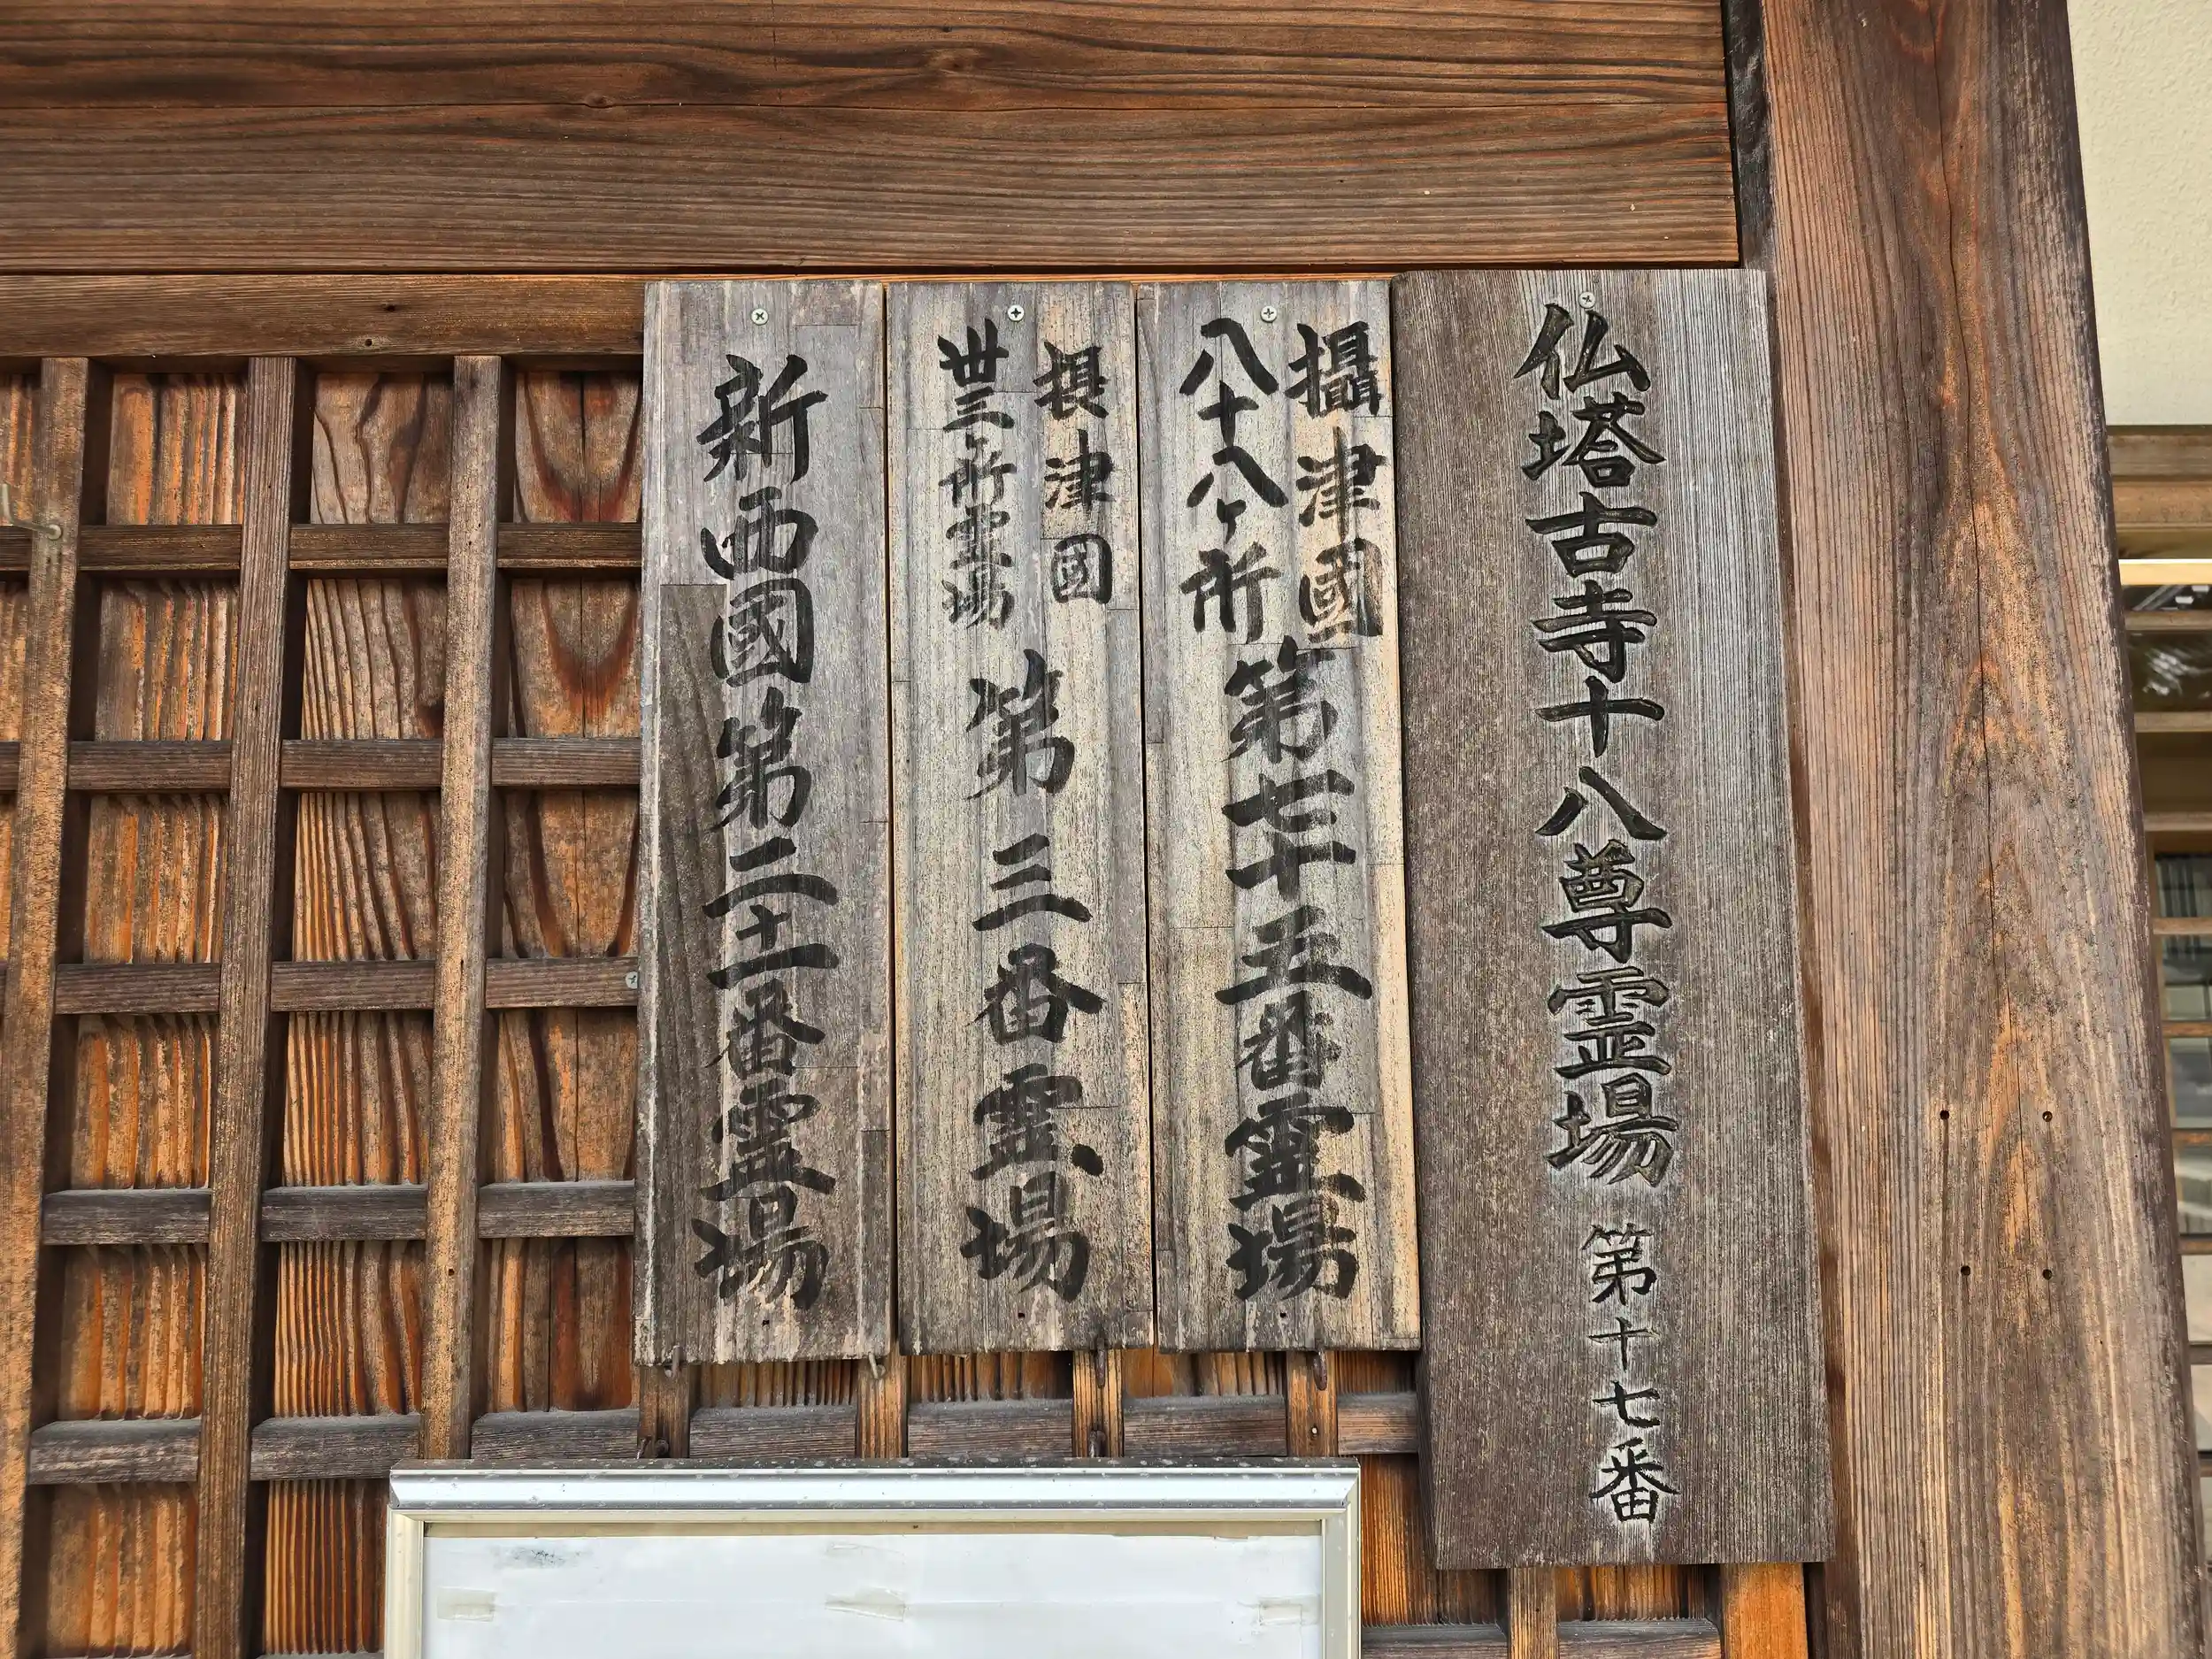 仏塔古寺十八尊霊場 第十七番
攝津國
八十八ヶ所
第七十五番霊場
摂津國
丗三ヶ所霊場
第三番霊場
新西國第二十一番霊場